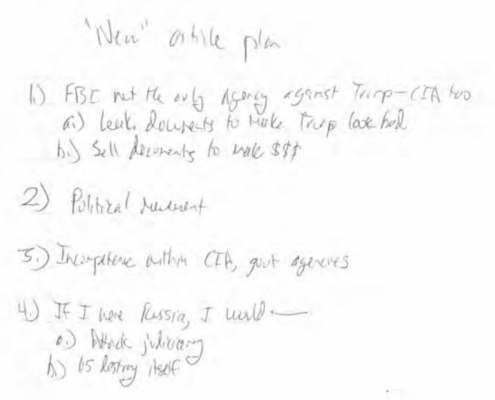 "New" article plan
1.) FBI not the only Agency against Trump - CIA too
a.) Leak documents to make Trump look bad
b.) Sell documents to make $$$
2) Political movement
3.) Incompetence within CIA, govt agencies
4.) If I were Russia, I would —
a.) Attack judiciary
b.) US destroy itself